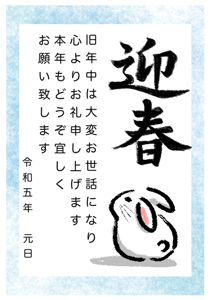 迎春
旧年中は大変お世話になり
心よりお礼申し上げます
本年もどうぞ宜しく
お願い致します
令和五年　元日